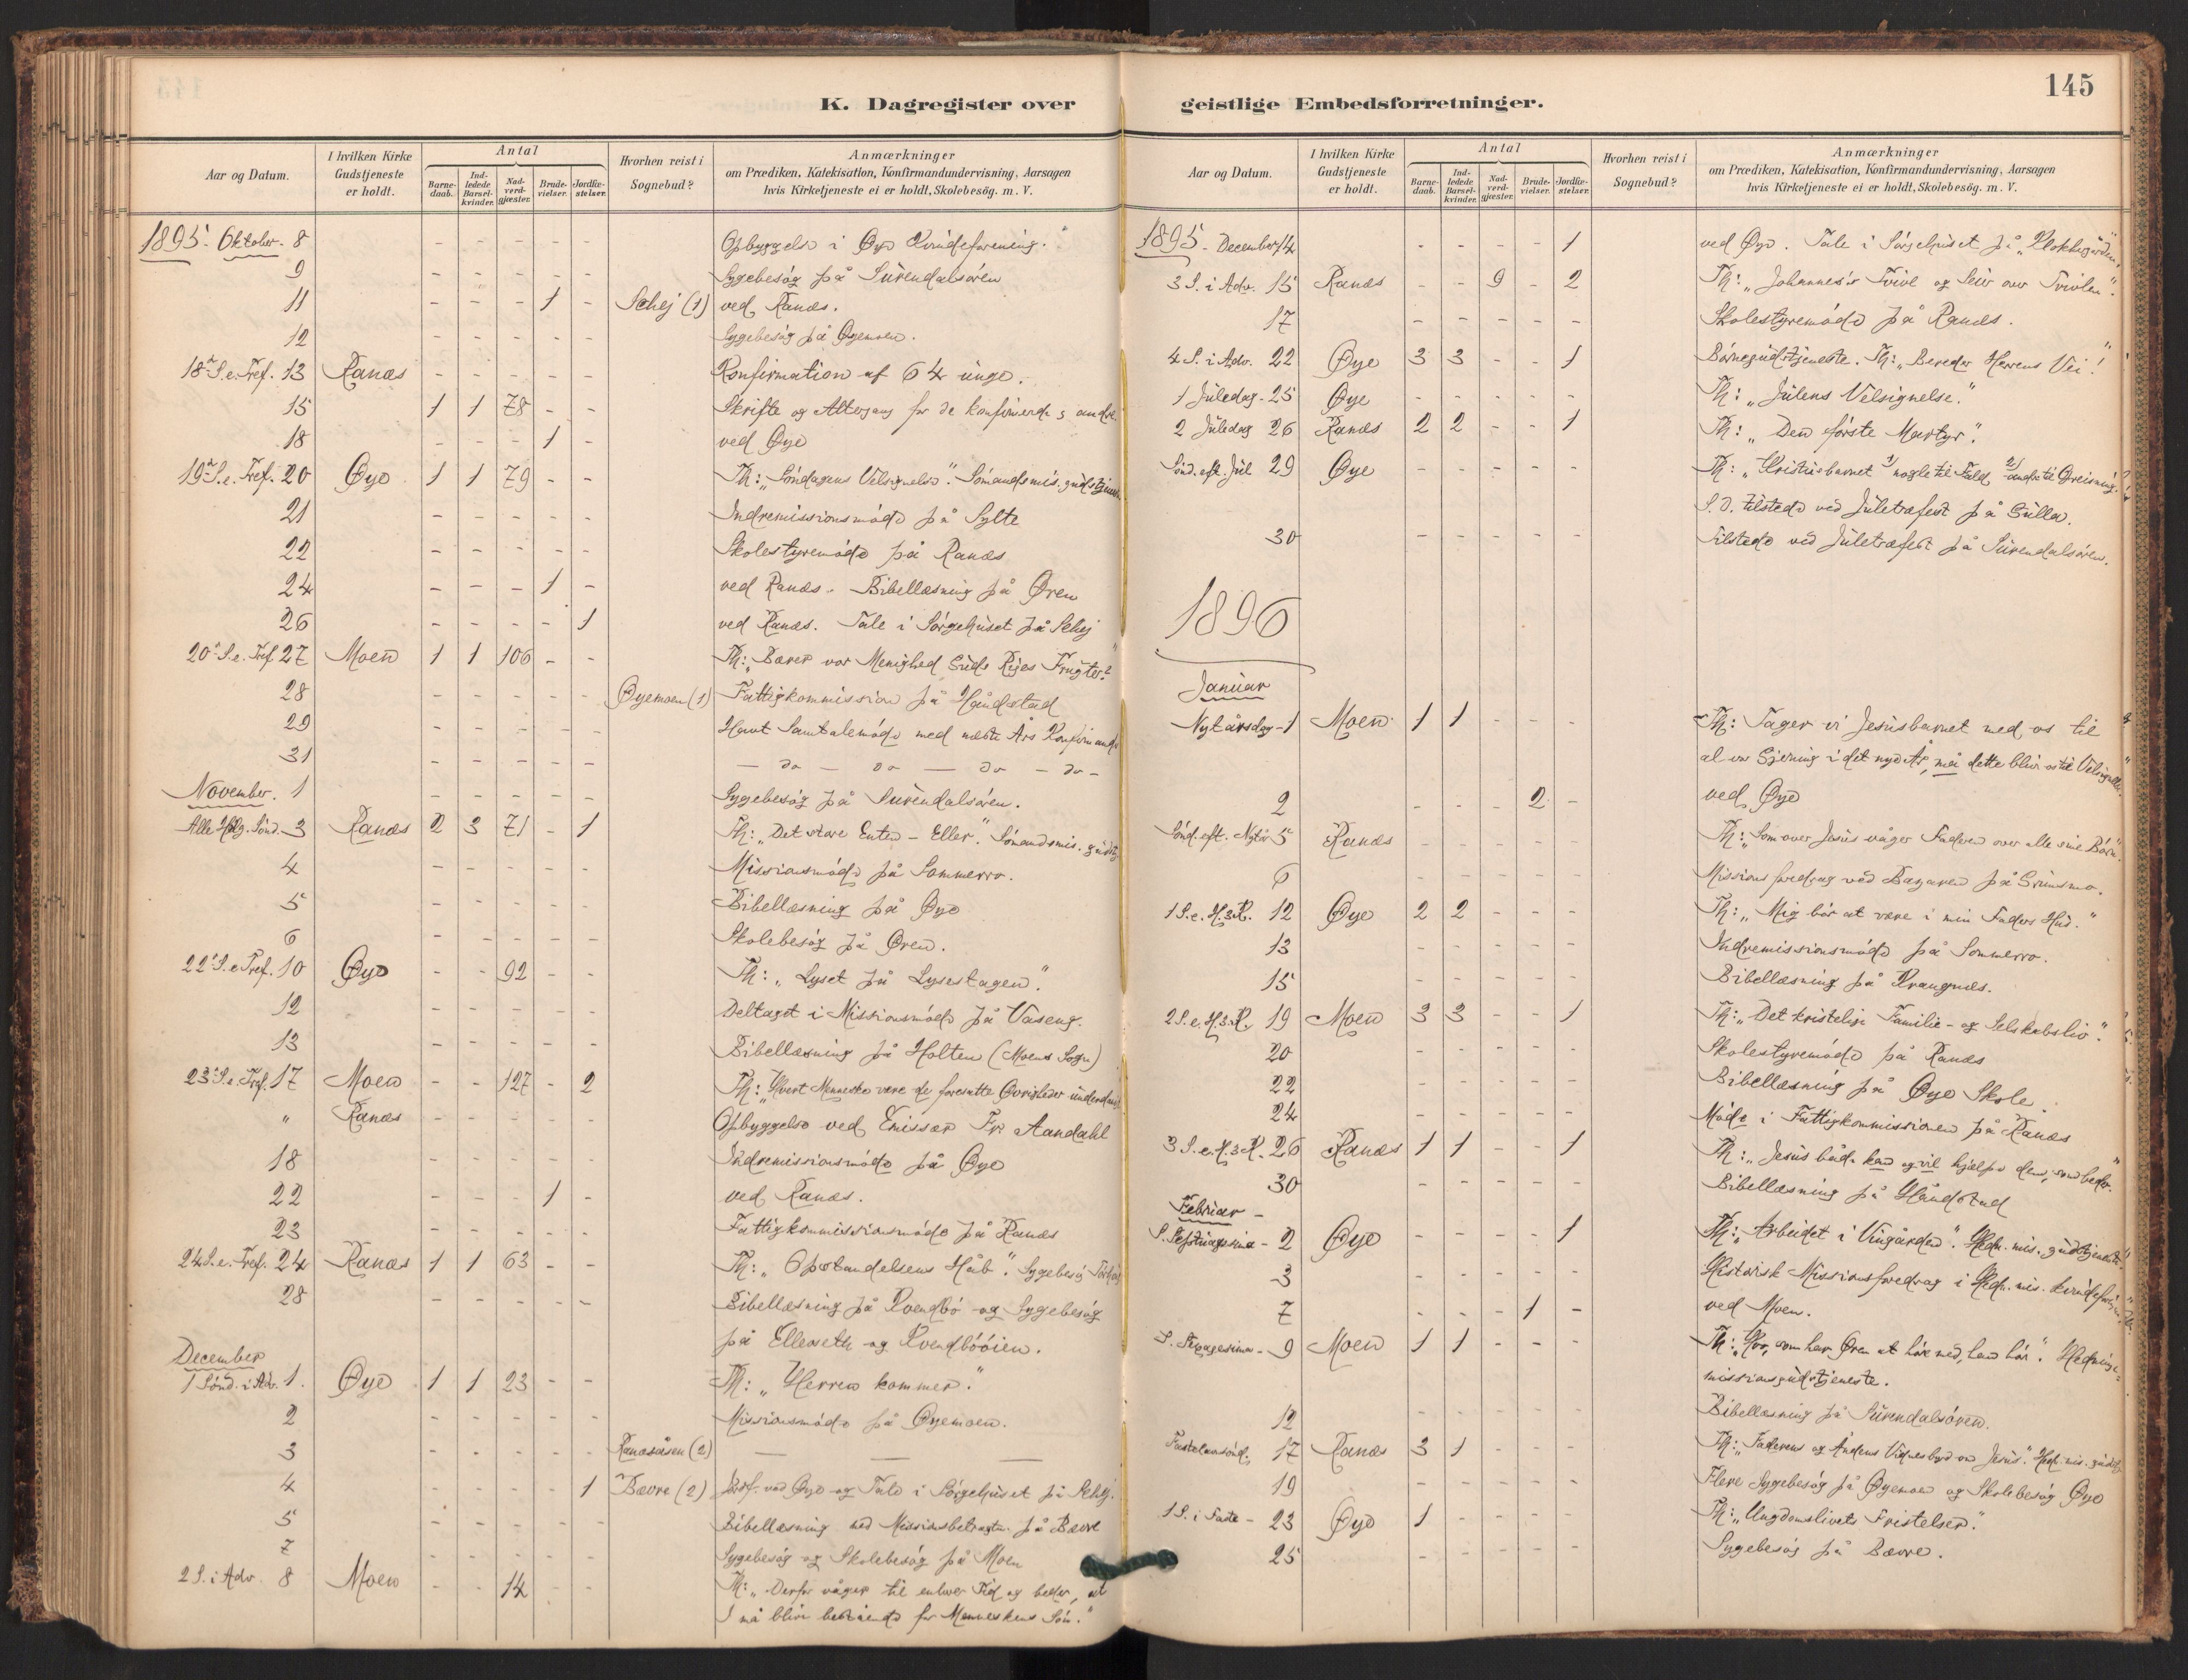 145
K. Dagregister over geistlige Embedsforretninger.
Aar og Datum. I hvilken Kirke Gudstjeneste er holdt. Antal Barne-daab. Ind-ledede Barsel-kvinder. Nad-verd-gjæster. Brude-vielser. Jordfæ-stelser. Hvorhen reist i Sognebud? Anmærkninger om Prædiken, Katekisation, Konfirmandundervisning, Aarsagen hvis Kirketjeneste ei er holdt, Skolebesög. m. V.
1895. Oktober. 8 - - - - - Opbyggelse i Øye Kvindeforening.
9 - - - - - Sygebesøg på Surendalsøren
11 - - - 1 - Schej (1) ved Ranæs.
12 - - - - - Sygebesøg på Øyemoen.
18de S. e. Tref. 13 Ranæs - - - - - Konfirmation af 64 unge.
15 1 1 78 - - Skrifte og Altergang for de konfirmerede & andre.
18 - - - 1 - ved Øye
19de S. e. Tref. 20 Øye 1 1 79 - - Th: „Søndagens Velsignelse". Sømandsmis. gudstjeneste
21 - - - - - Indremissionsmøde på Sylte
22 - - - - - Skolestyremøde på Ranæs
24 - - - 1 - ved Ranæs. Bibellæsning på Øren
26 - - - - 1 ved Ranæs. Tale i Sørgehuset på Schej
20de S. e. Tref. 27 Moen 1 1 106 - - Th: „Bærer vor Menighed Guds Riges Frugter?"
28 - - - - - Øyemoen (1) Fattigkommission på Håndstad
29 - - - - - Havt Samtalemøde med næste Års Konfirmander
31 - - - - - — do — do — do — do —
November. 1 - - - - - Sygebesøg på Surendalsøren.
Alle Helg. Sønd. 3 Ranæs 2 3 71 - 1 Th: „Det store Enten - Eller". Sømandsmis. gudstj
4 - - - - - Missionsmøde på Sommerro.
5 - - - - - Bibellæsning på Øye
6 - - - - - Skolebesøg på Øren.
22de S. e. Tref. 10 Øye - - 92 - - Th: „Lyset på Lysestagen".
12 - - - - - Deltaget i Missionsmøde på Vaseng.
13 - - - - - Bibellæsning på Holten (Moens Sogn)
23de S. e. Tref. 17 Moen - - 127 - 2 Th: „Hvert Menneske være de foresatte Øvrigheder underdanig
" Ranæs - - - - - Opbyggelse ved Emissær Fr. Aandahl
18 - - - - - Indremissionsmøde på Øye
22 - - - 1 - ved Ranæs.
23 - - - - - Fattigkommissionsmøde på Ranæs
24 S. e. Tref. 24 Ranæs 1 1 63 - - Th: „Opstandelsens Håb". Sygebesøg
28 - - - - - Bibellæsning på Kvendbø og Sygebesøg
på Ellevseth og Kvendbøøien.
December
1 Sønd. i Adv. 1. Øye 1 1 23 - - Th: „Herren kommer."
2 - - - - - Missionsmøde på Øyemoen.
3 - - - - - Ranæsåsen (2) — — —
4 - - - - 1 Bævre (2) Jordf. ved Øye og Tale i Sørgehuset på Schej.
5 - - - - - Bibellæsning med Missionsbetragtn. på Bævre
7 - - - - - Sygebesøg og Skolebesøg på Moen
2 S. i Adv. 8 Moen - - 14 - - Th: „Derfor våger til enhver Tid og beder, at
I må blive bestående for Menneskens Søn."
Aar og Datum. I hvilken Kirke Gudstjeneste er holdt. Antal Barne-daab. Ind-ledede Barsel-kvinder. Nad-verd-gjæster. Brude-vielser. Jordfæ-stelser. Hvorhen reist i Sognebud? Anmærkninger om Prædiken, Katekisation, Konfirmandundervisning, Aarsagen hvis Kirketjeneste ei er holdt, Skolebesög. m. V.
1895 - December 14 - - - - 1 ved Øye. Tale i Sørgehuset på „Klokkergården"
3 S. i Adv. 15 Ranæs - - 9 - 2 Th: „Johannes's Tvivl og Seier over Tvivlen".
17 - - - - - Skolestyremøde på Ranæs.
4 S. i Adv. 22 Øye 3 3 - - 1 Børnegudstjeneste. Th: „Bereder Herrens Vei!"
1 Juledag - 25 Øye - - - - - Th: „Julens Velsignelse."
2 Juledag 26 Ranæs 2 2 - - 1 Th: „Den første Martyr".
Sønd. eft. Jul 29 Øye - - - - - Th: „Kristusbarnet 1) nogle til Fald, 2) andre til Opreisning".
S. D. tilstede ved Juletræfest på Gulla.
30 - - - - - Tilstede ved Juletræfest på Surendalsøren.
1896
Januar
Nytårsdag - 1 Moen 1 1 - - - Th: Tager vi Jesusbarnet med os til
al vor Gjerning i det nye År, må dette blive os til Velsignelse.
2 - - - 2 - ved Øye
Sønd. eft. Nytår 5 Ranæs - - - - - Th: „Som over Jesus våger Faderen over alle sine Børn".
6 - - - - - Missionsforedrag ved Bazaren på Grimsmo.
1 S. e. H. 3 K. 12 Øye 2 2 - - - Th: „Mig bør at være i min Faders Hus."
13 - - - - - Indremissionsmøde på Sommerro.
15 - - - - - Bibellæsning på Krangnæs.
2 S. e. H. 3 K. 19 Moen 3 3 - - 1 Th: „Det kristelige Familie- og Selskabsliv".
20 - - - - - Skolestyremøde på Ranæs
22 - - - - - Bibellæsning på Øye Skole.
24 - - - - - Møde i Fattigkommissionen på Ranæs
3 S. e. H. 3 K. 26 Ranæs 1 1 - - 1 Th: „Jesus både kan og vil hjælpe dem, som beder."
30 - - - - - Bibellæsning på Håndstad
Februar -
S. Septuagesima - 2 Øye - - - - 1 Th: „Arbeidet i Vingården". Hedn. mis. gudstjeneste.
3 - - - - - Historisk Missionsforedrag i Hedn. mis. kvindeforening.
7 - - - 1 - ved Moen.
S. Sexagesima - 9 Moen 1 1 - - - Th: „Hvo, som har Øren at høre med, han hør". Hednings-
missionsgudstjeneste.
12 - - - - - Bibellæsning på Surendalsøren.
Fastelavnssønd. 17 Ranæs 3 1 - - - Th: „Faderens og Åndens Vidnesbyrd om Jesus". Hedn. mis. gudstj
19 - - - - - Flere Sygebesøg på Øyemoen og Skolebesøg Øye
1 S. i Faste - 23 Øye 1 - - - - Th: „Ungdomslivets Fristelser."
25 - - - - - Sygebesøg på Bævre.